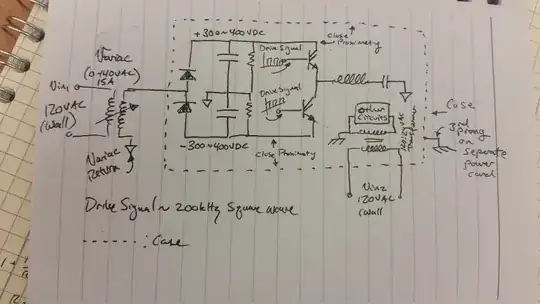 Variac
(0-140VAC)
15A
Vin
120VAC
(Wall)
Variac
Return
+300~400VDC
-300~400VDC
Drive Signal
Drive Signal
Close
Proximity
Close Proximity
Other
Circuits
Transformer
Vin2
120VAC
(Wall
Case
3rd
prong
on
separate
power
cord
Drive Signal ~ 200kHz Square wave
------ : Case